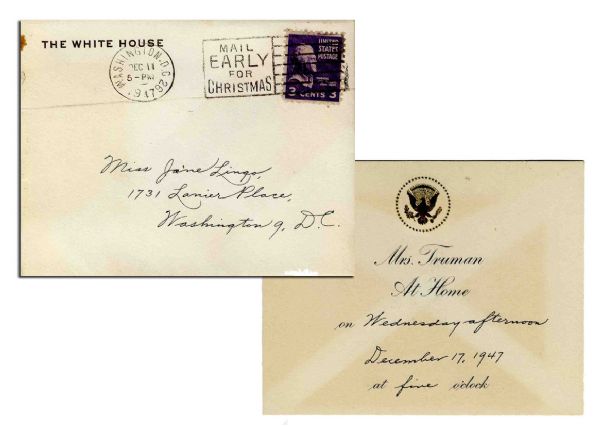 THE WHITE HOUSE
WASHINGTON, D.C.
DEC 11
5-PM
1947
MAIL
EARLY
FOR
CHRISTMAS
UNITED
STATES
POSTAGE
3 CENTS 3
Miss Jane Lingo,
1731 Lanier Place,
Washington 9, D.C.
Mrs. Truman
At Home
on Wednesday afternoon
December 17, 1947
at five o'clock